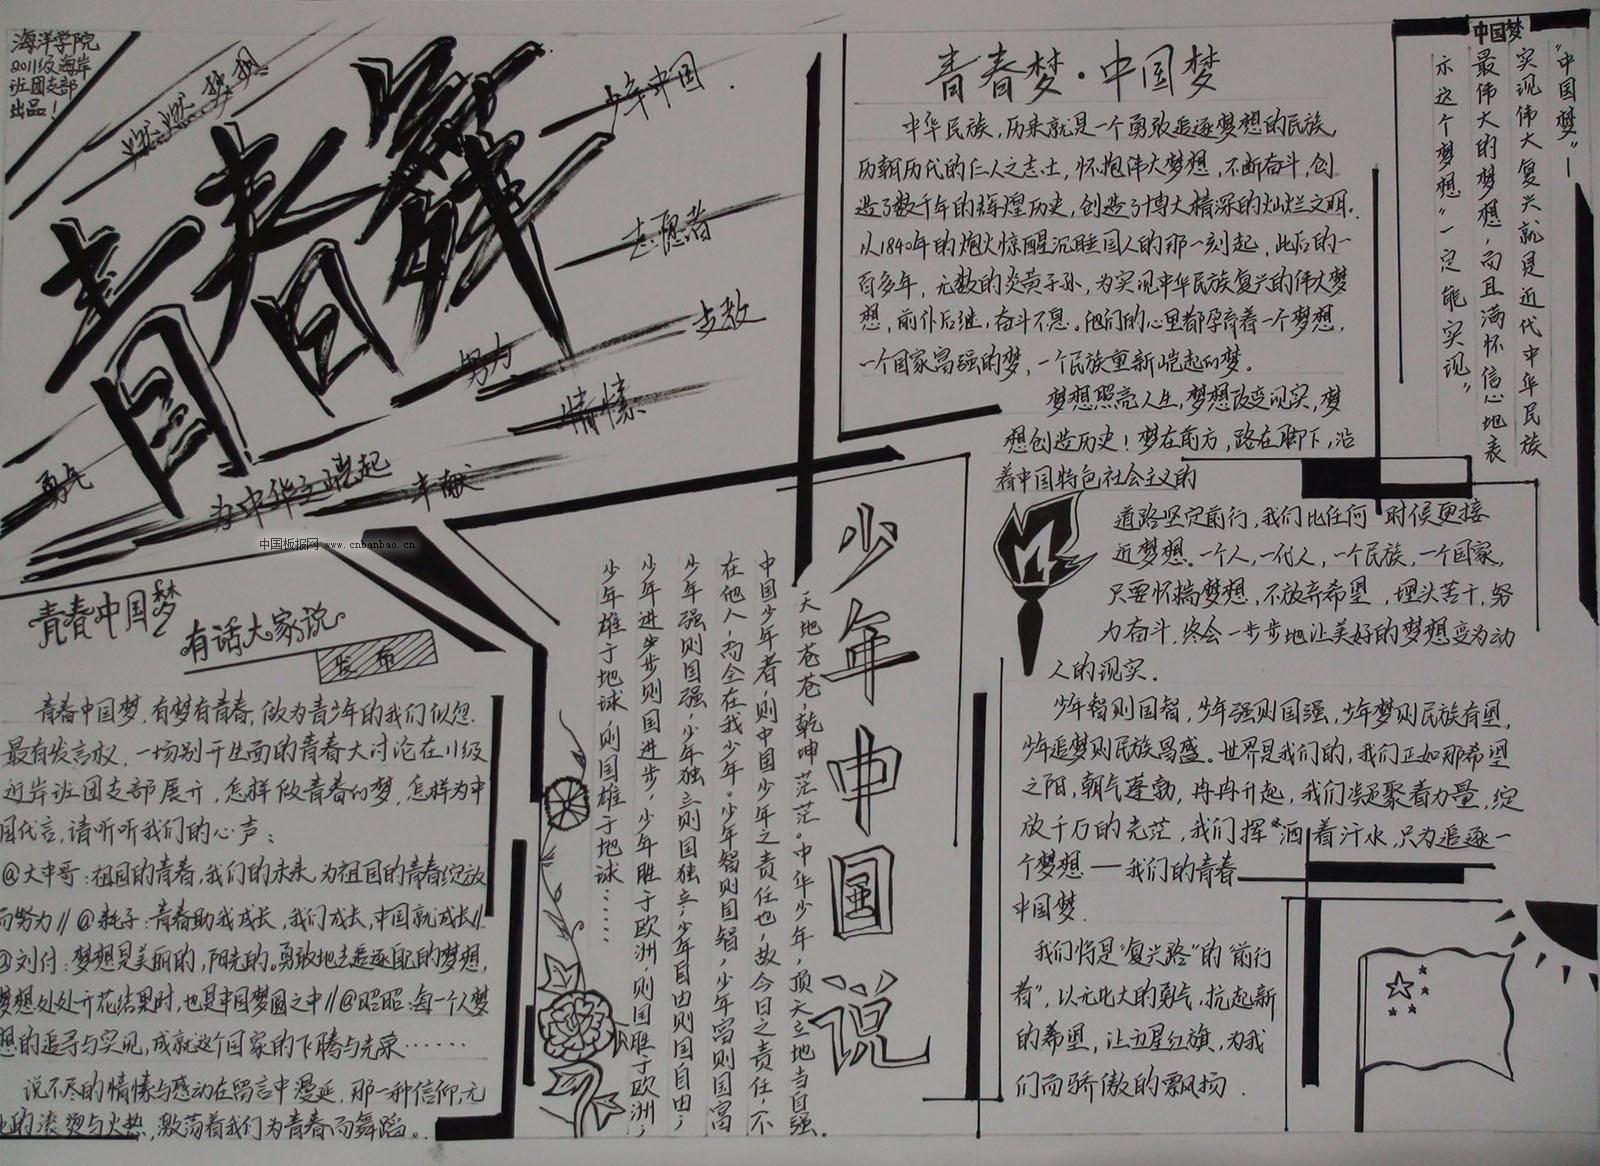 海洋学院
2011级海岸
班团支部
出品！
青春舞
少年中国
志愿者
支教
努力
情愫
为中华之崛起
奉献
中国板报网 www.cnbanbao.cn
青春中国梦
有话大家说
发布
青春中国梦,有梦有青春,做为青少年的我们似忽
最有发言权,一场别开生面的青春大讨论在11级
近岸班团支部展开,怎样做青春的梦,怎样为中
国代言,请听听我们的心声:
@大中哥:祖国的青春,我们的未来,为祖国的青春绽放
而努力//@耗子:青春助我成长,我们成长,中国就成长//
@刘付:梦想是美丽的,阳光的。勇敢地去追逐自己的梦想,
梦想处处开花结果时,也是中国梦圆之中//@昭昭:每一个人梦
想的追寻与实现,成就这个国家的飞腾与光荣……
说不尽的情愫与感动在留言中漫延,那一种信仰,无
的滚烫与火热,激荡着我们为青春而舞蹈。
少年中国说
天地苍苍,乾坤茫茫。中华少年,顶天立地当自强.
中国少年者,则中国少年之责任也,故今日之责任,不
在他人,而全在我少年。少年智则国智,少年富则国富
少年强则国强,少年独立则国独立,少年自由则国自由,
少年进步则国进步,少年胜于欧洲,则国胜于欧洲,
少年雄于地球,则国雄于地球……
青春梦·中国梦
中华民族,历来就是一个勇敢追逐梦想的民族,
历朝历代的仁人之志士,怀抱伟大梦想,不断奋斗,创
造了数千年的辉煌历史,创造了博大精深的灿烂文明.
从1840年的炮火惊醒沉睡国人的那一刻起,此后的一
百多年,无数的炎黄子孙,为实现中华民族复兴的伟大梦
想,前仆后继,奋斗不息。他们的心里都孕育着一个梦想,
一个国家富强的梦,一个民族重新崛起的梦。
梦想照亮人生,梦想改变现实,梦
想创造历史!梦在前方,路在脚下,沿
着中国特色社会主义的
道路坚定前行,我们比任何 时候更接
近梦想。一个人,一代人,一个民族,一个国家,
只要怀揣梦想,不放弃希望,埋头苦干,努
力奋斗,终会一步步地让美好的梦想变为动
人的现实.
少年智则国智,少年强则国强,少年梦则民族有望,
少年追梦则民族昌盛。世界是我们的,我们正如那希望
之阳,朝气蓬勃,冉冉升起,我们凝聚着力量,绽
放千万的光茫,我们挥洒着汗水,只为追逐一
个梦想——我们的青春
中国梦.
我们将是“复兴路”的“前行
者”,以无比大的勇气,抗起新
的希望,让五星红旗,为我
们而骄傲的飘扬.
中国梦
“中国梦”—
实现伟大复兴就是近代中华民族
最伟大的梦想,而且满怀信心地表
示这个梦想“一定能实现”